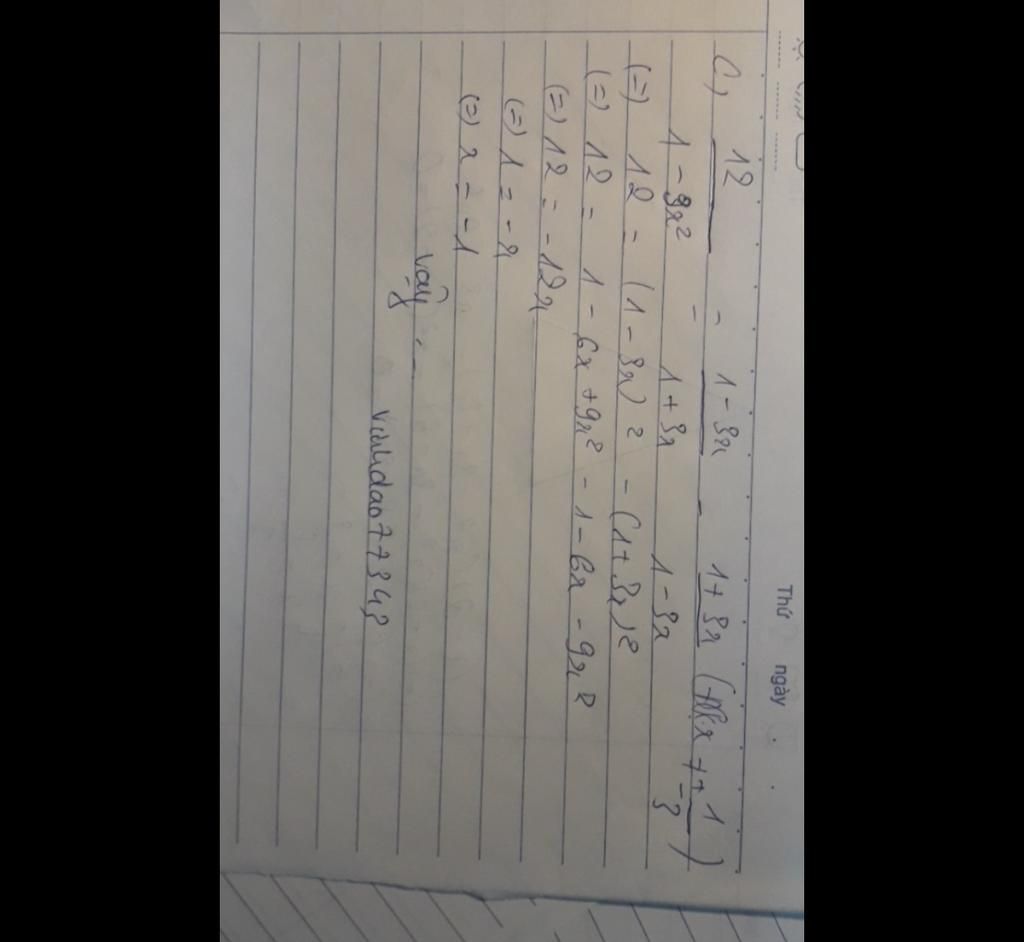 Thứ ngày
C, 12/(1 - 9x²) = (1 - 3x)/(1 + 3x) - (1 + 3x)/(1 - 3x) (ĐK x ≠ ± 1/3)
(=) 12 = (1 - 3x)² - (1 + 3x)²
(=) 12 = 1 - 6x + 9x² - 1 - 6x - 9x²
(=) 12 = -12x
(=) 1 = -x
(=) x = -1
Vậy ...
vinhdao7734